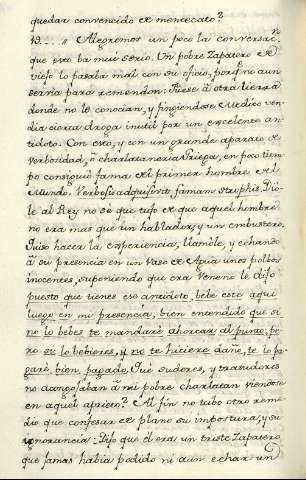 quedar convencido de mentecato?
19.... „ Alegremos un poco la conversac.n
que esto ba mui serio. Un pobre Zapatero de
viejo lo pasaba mal con su oficio, porq.e no aun
servia para remendon: fuese à otra tierra
donde no le conocian, y fingiendose Medico ven-
dia cierta droga inutil por un excelente an-
tidoto. Con esto, y con un grande aparato de
verbosidad, ò charlataneria Griega, en poco tiem-
po consiguiò fama del primer hombre del
Mundo. Verbosis adquisivit famam strophis. Dio-
le al Rey no sè que tufo de que aquel hombre
no era mas que un hablador, y un embustero.
Quiso hacer la experiencia, llamòle, y echando
à su presencia en un vaso de Agua unos polbos
inocentes, suponiendo que era Veneno le dijo
puesto que tienes ese antidoto, bebe este aqui
luego en mi presencia, bien entendido que si
no lo bebes te mandarè ahorcar al punto, pe-
ro si lo bebieres, y no te hiciere daño, te lo pa-
garè, bien, pagado. Què sudores, y trasudores
no acongojaban à mi pobre charlatan viendose
en aquel aprieto? Al fin no tubo otro reme-
dio que confesar de plano su impostura, y su
ignorancia: Dijo que èl era un triste Zapatero
que jamas habia podido ni aun echar un